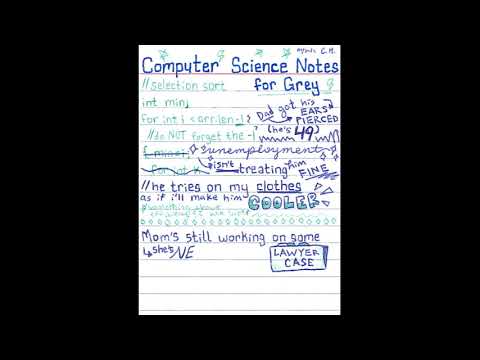 Computer Science Notes
for Grey
//selection sort
int min;
for int i < arr.len-1
Dad got his
EARS
PIERCED
//do NOT forget the -1
(he's 49)
unemployment
isn't
treating him
FINE
//he tries on my clothes
as if i'll make him
COOLER
Mom's still working on some
LAWYER
CASE
↳she's